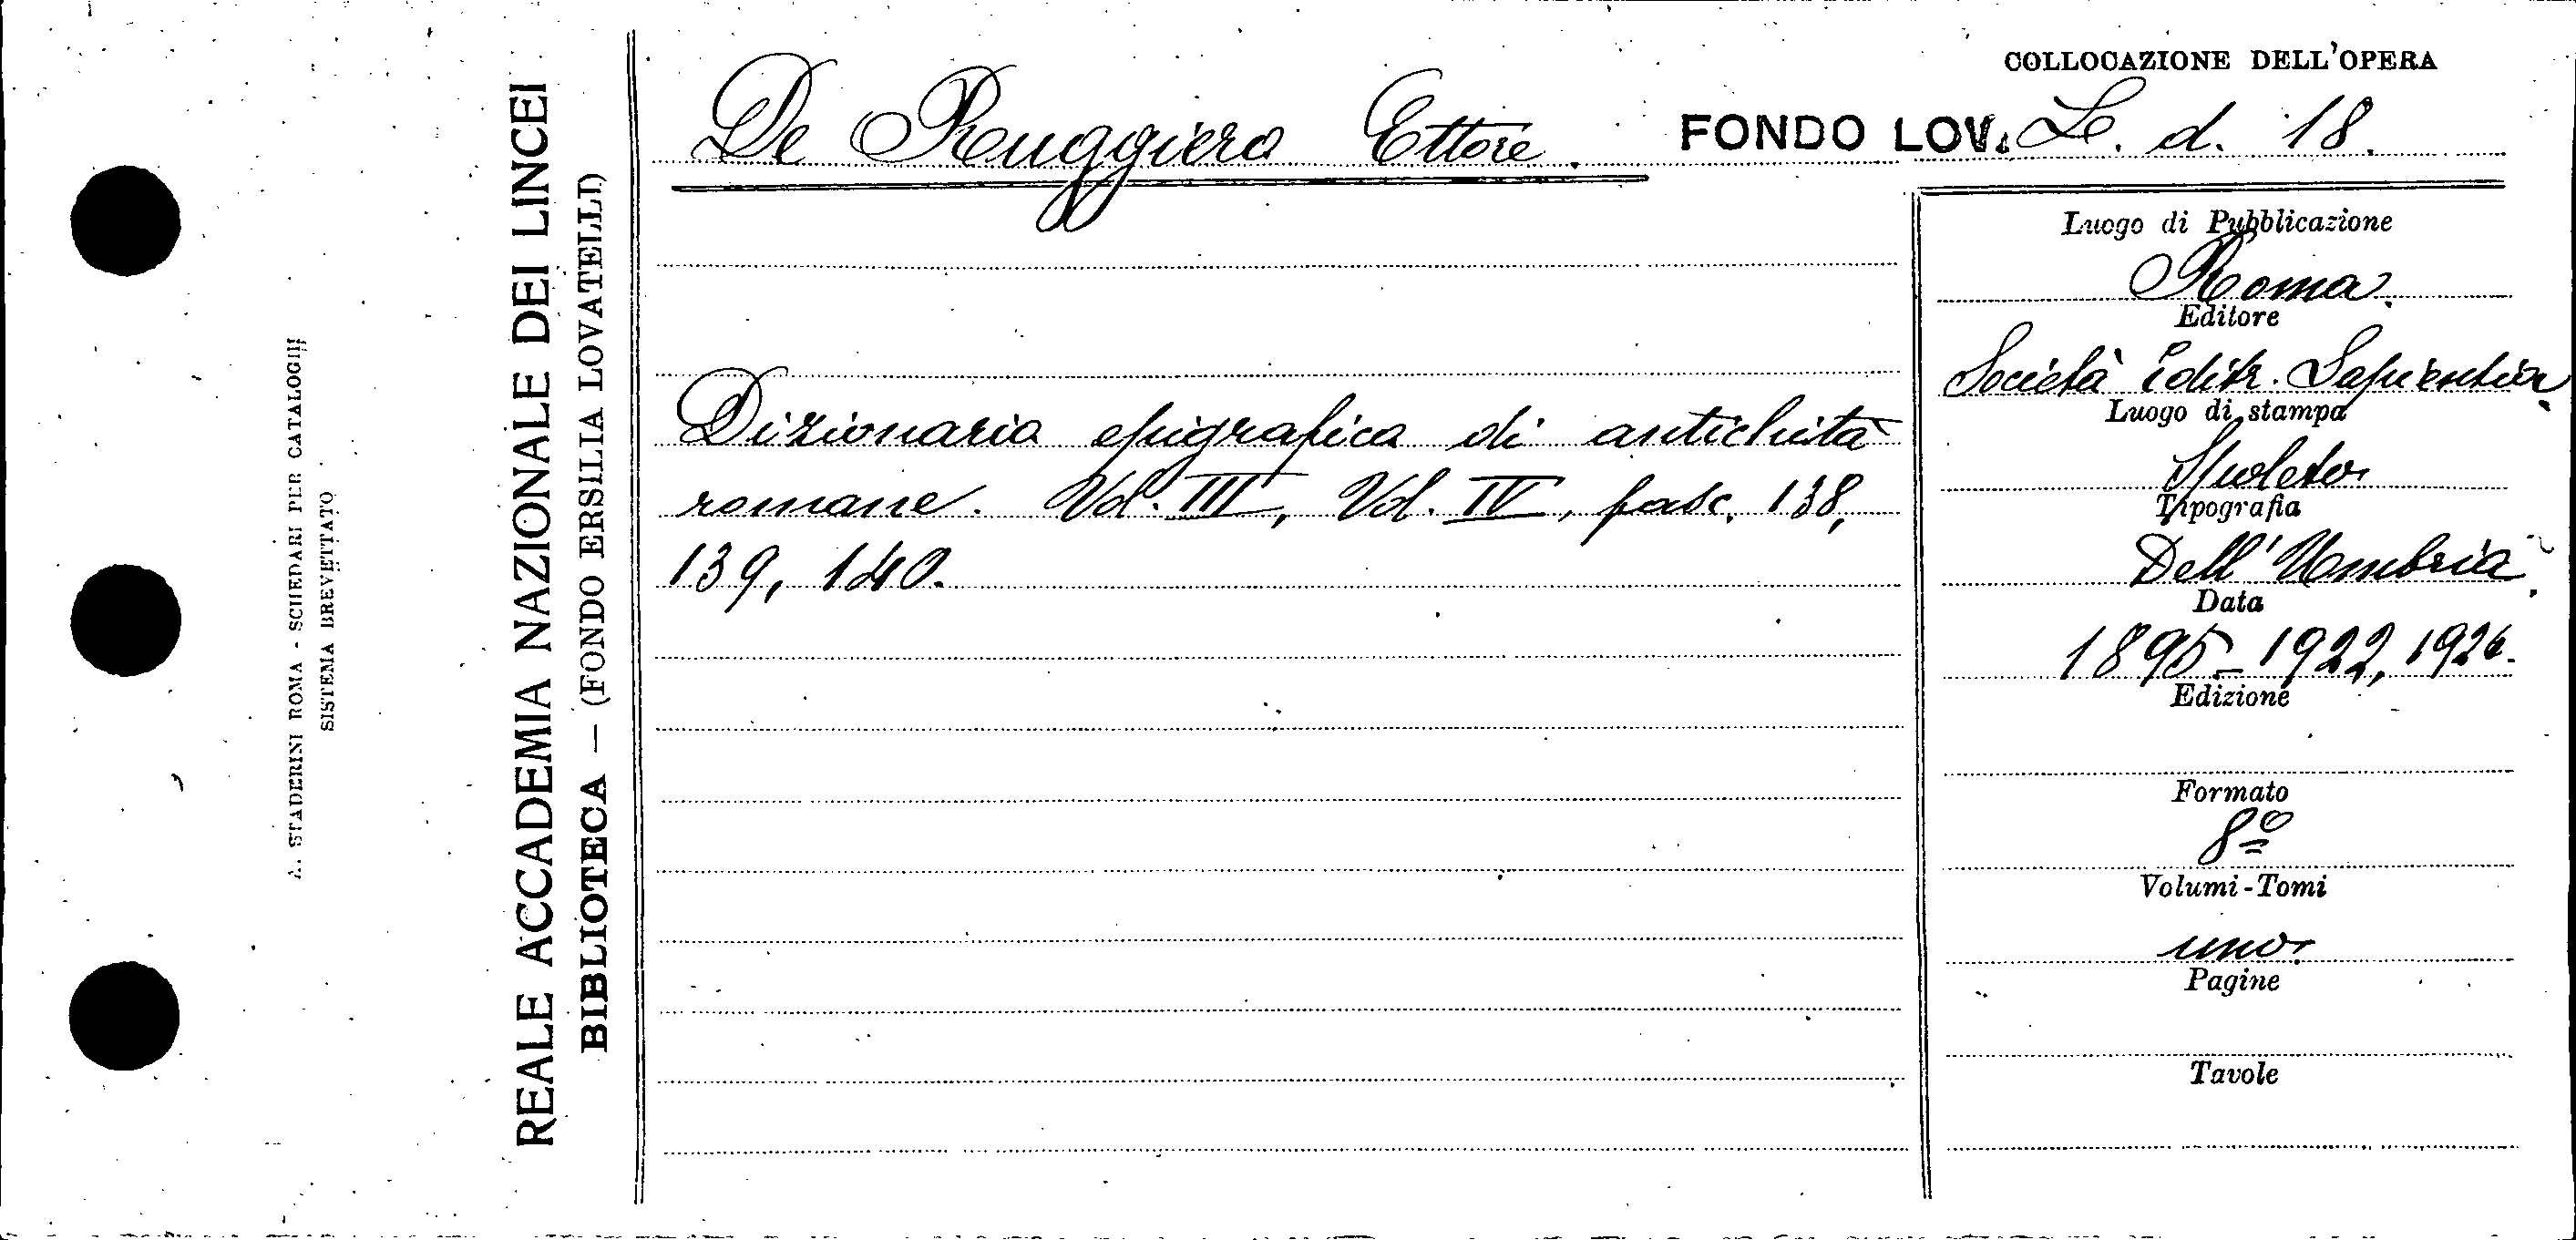 A. STADERINI ROMA - SCHEDARI PER CATALOGHI
SISTEMA BREVETTATO
REALE ACCADEMIA NAZIONALE DEI LINCEI
BIBLIOTECA — (FONDO ERSILIA LOVATELLI)
De Ruggiero Ettore.
COLLOCAZIONE DELL'OPERA
FONDO LOV. L. d. 18.
Dizionario epigrafico di antichità
romane. Vol. III, Vol. IV, fasc. 138,
139, 140.
Luogo di Pubblicazione
Roma.
Editore
Società Editr. Sapientia.
Luogo di stampa
Spoleto
Tipografia
Dell'Umbria.
Data
1895-1922, 1926.
Edizione
Formato
8º
Volumi-Tomi
uno.
Pagine
Tavole